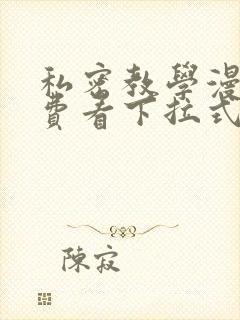 私密教學漫
費看下拉式
陳寂